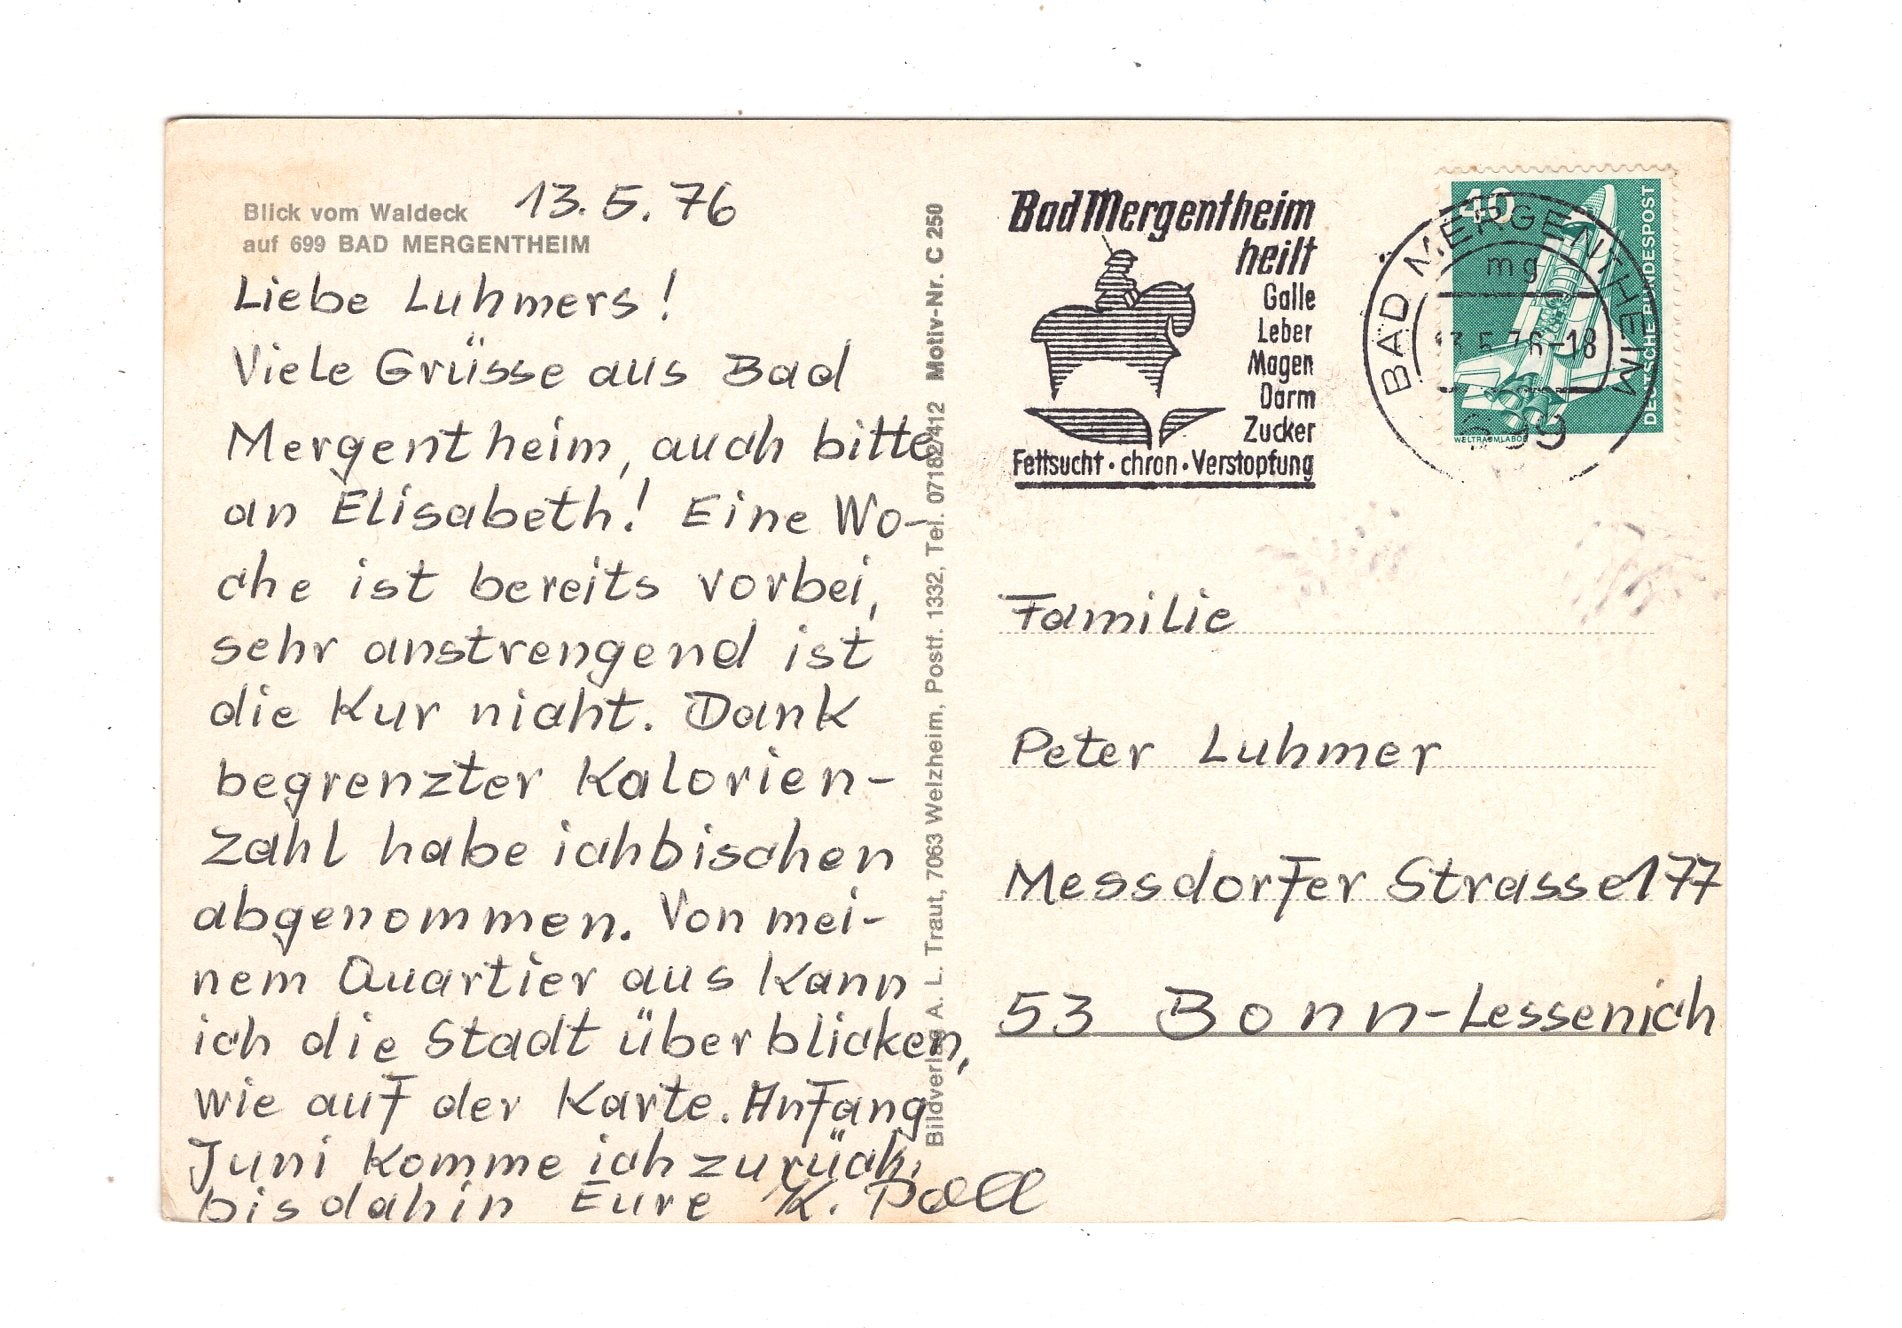 Blick vom Waldeck
auf 699 BAD MERGENTHEIM
13.5.76
Liebe Luhmers!
Viele Grüsse aus Bad
Mergentheim, auch bitte
an Elisabeth! Eine Wo-
che ist bereits vorbei,
sehr anstrengend ist
die Kur nicht. Dank
begrenzter Kalorien-
zahl habe ich bischen
abgenommen. Von mei-
nem Quartier aus kann
ich die Stadt überblicken,
wie auf der Karte. Anfang
Juni komme ich zurück,
bis dahin Eure K. Poll
Bildverlag A. L. Traut, 7063 Welzheim, Postf. 1332, Tel. 07182/412 Motiv-Nr. C 250
Bad Mergentheim
heilt
Galle
Leber
Magen
Darm
Zucker
Fettsucht · chron · Verstopfung
BAD MERGENTHEIM
mg
13.5.76-18
699
40
DEUTSCHE BUNDESPOST
WELTRAUMLABOR
Familie
Peter Luhmer
Messdorfer Strasse 177
53 Bonn-Lessenich